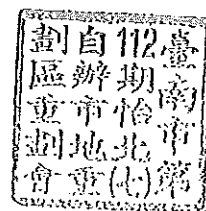 臺南市第
112期怡北(七)
自辦市地重
劃區重劃會